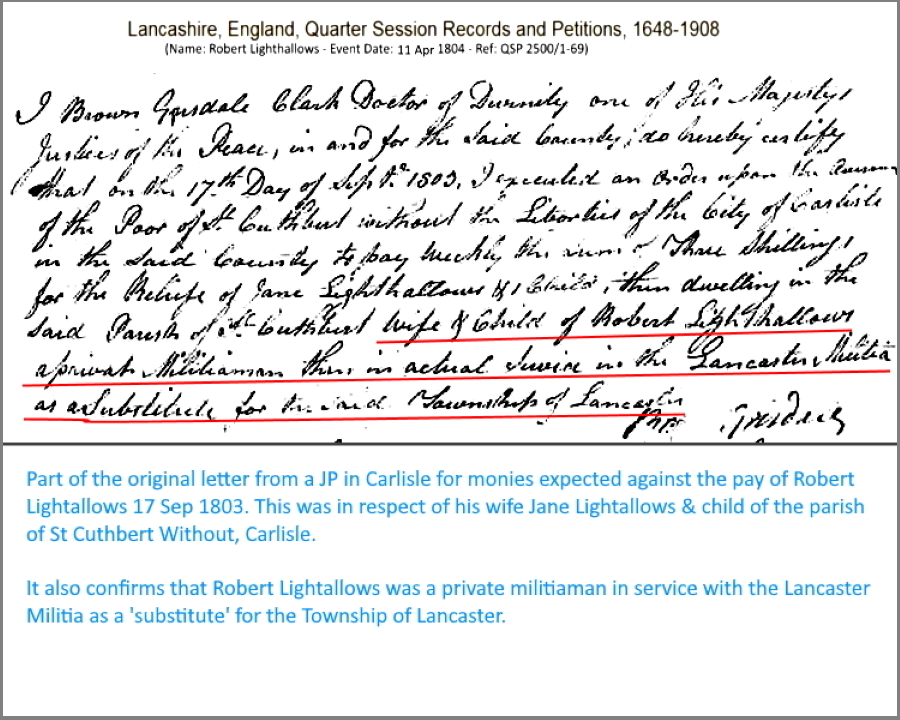 Lancashire, England, Quarter Session Records and Petitions, 1648-1908
(Name: Robert Lighthallows - Event Date: 11 Apr 1804 - Ref: QSP 2500/1-69)
I Brown Grisdale Clerk Doctor of Divinity one of His Majestys
Justices of the Peace, in and for the said County, do hereby certify
that on the 17th Day of Septr. 1803, I executed an Order upon the
of the Poor of St Cuthbert without the Liberties of the City of Carlisle
in the said County to pay weekly the sum of Three Shillings
for the Reliefe of Jane Lighthallows & 1 Child, then dwelling in the
said Parish of St. Cuthbert wife & Child of Robert Lighthallows
a private Militiaman then in actual Service in the Lancaster Militia
as a Substitute for the said Township of Lancaster
Grisdale
Part of the original letter from a JP in Carlisle for monies expected against the pay of Robert
Lightallows 17 Sep 1803. This was in respect of his wife Jane Lightallows & child of the parish
of St Cuthbert Without, Carlisle.
It also confirms that Robert Lightallows was a private militiaman in service with the Lancaster
Militia as a 'substitute' for the Township of Lancaster.